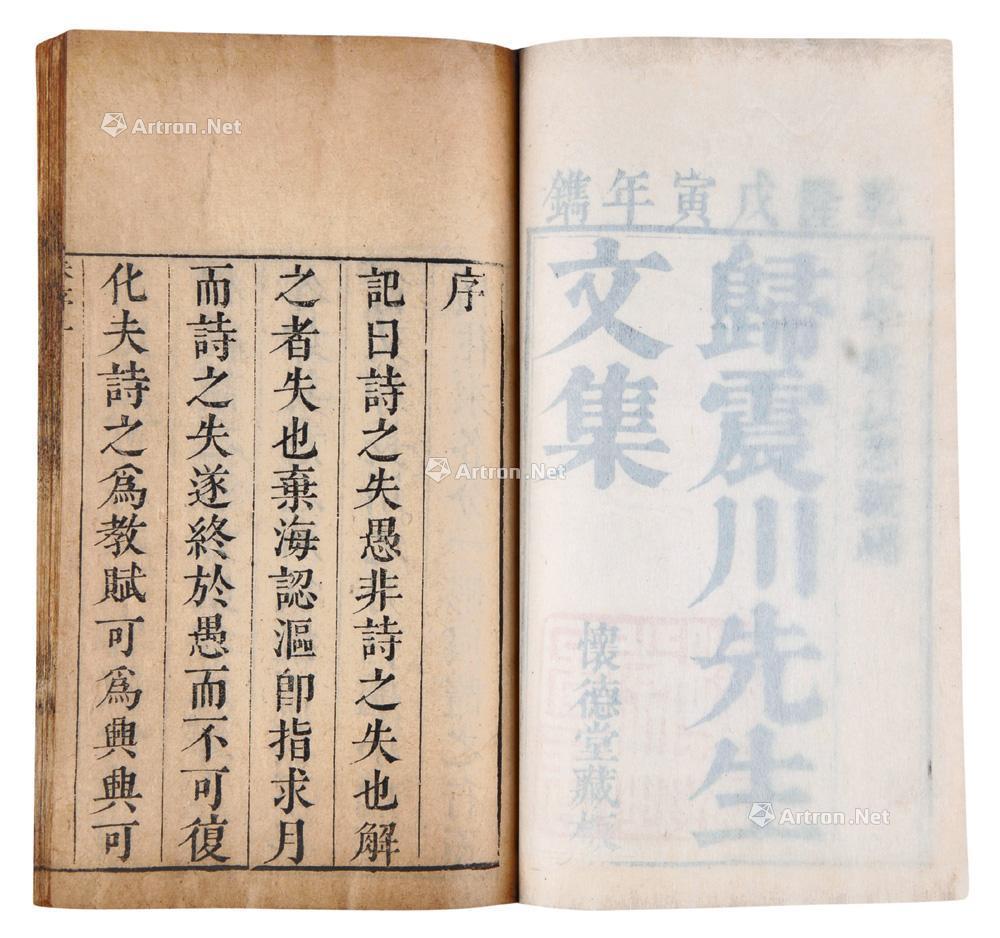 乾隆戊寅年鐫
歸震川先生
文集
懷德堂藏板
序
記曰詩之失愚非詩之失也解
之者失也棄海認漚卽指求月
而詩之失遂終於愚而不可復
化夫詩之爲教賦可爲興興可
Artron.Net
Artron.Net
Artron.Net